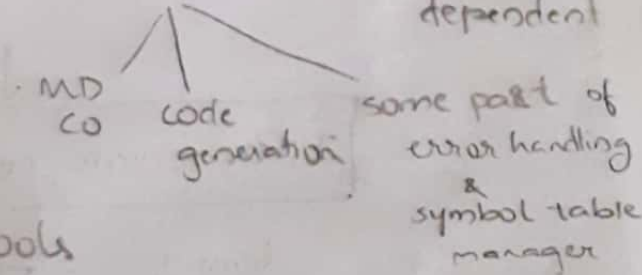 dependent
MD
CO
code
generation
some part of
error handling
&
symbol table
manager